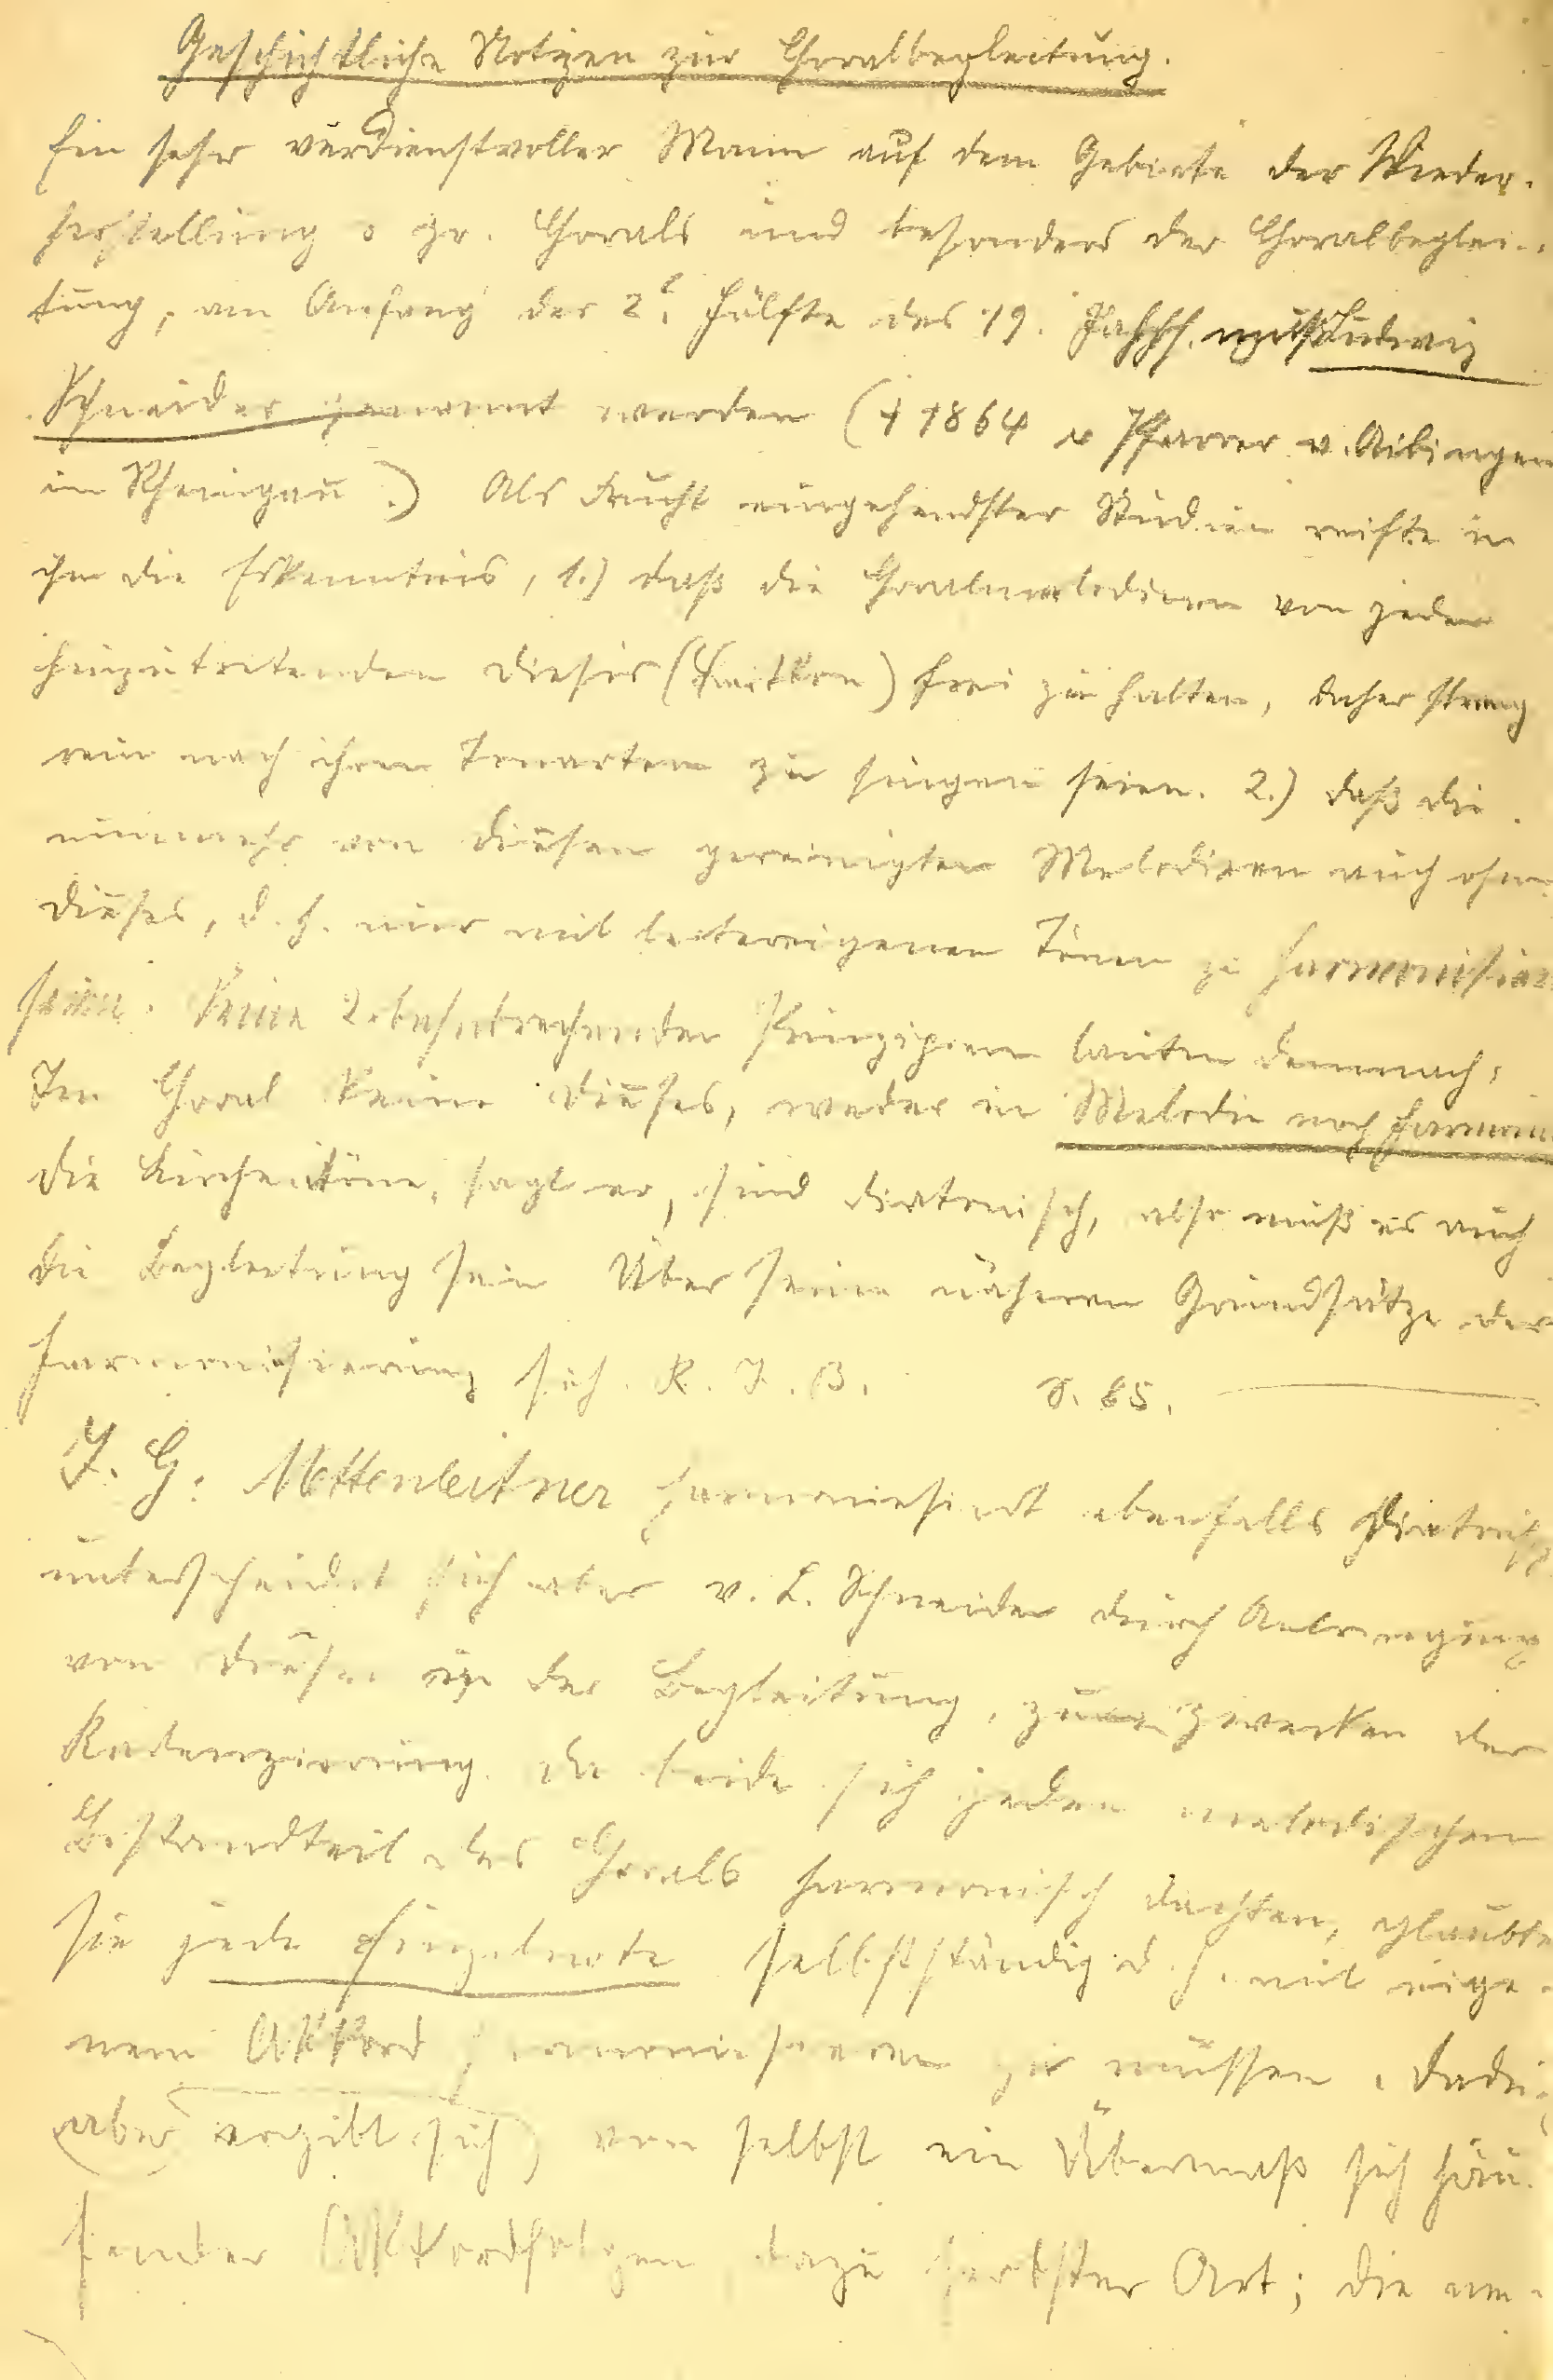 Geschichtliche Notizen zur Choralbegleitung.
Ein sehr verdienstvoller Mann auf dem Gebiete der Wieder-
herstellung d gr. Chorals und besonders der Choralbeglei-
tung, am Anfang der 2. Hälfte des 19. Jahrh. muß Ludwig
Schneider genannt werden († 1864 als Pfarrer v. Aibingen
im Rheingau.) Als Frucht eingehendster Studien reifte in
ihm die Erkenntnis, 1.) daß die Choralmelodieen von jeder
hinzutretenden Diesis (Leitton) frei zu halten, daher streng
rein nach ihren Tonarten zu singen seien. 2.) daß die
nunmehr von Diesen gereinigten Melodieen auch ohne
Dieses, d. h. nur mit leitereigenen Tönen zu harmonisieren
seien. Seine 2 bahnbrechenden Prinzipien lauten demnach:
Im Choral keine Dieses, weder in Melodie noch Harmonie
Die Kirchentöne, sagt er, sind diatonisch, also muß es auch
die Begleitung sein Über seine näheren Grundsätze der
Harmonisierung sieh. K. J. B. S. 85.
J. G. Mettenleitner harmonisiert ebenfalls diatonisch
unterscheidet sich aber v. L. Schneider durch Anbringung
von Diesen in der Begleitung, zu Zwecken der
Kadenzierung. Da beide sich jeden melodischen
Bestandteil des Chorals harmonisch dachten, glaubten
sie jede Einzelnote selbstständig d. h. mit eige-
nem Akkord harmonisieren zu müssen. Dadurch
(aber ergibt sich) von selbst ein Übermaß sich häu-
fender Akkordfolgen dazu herbster Art; die um-